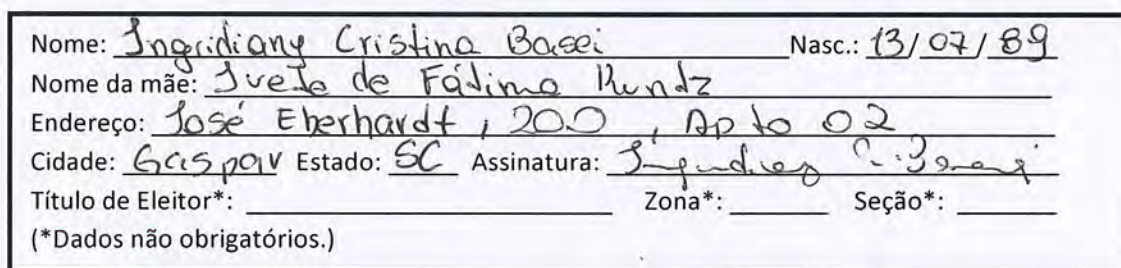 Nome: Ingridiany Cristina Basei Nasc.: 13/07/89
Nome da mãe: Ivete de Fátima Kundz
Endereço: José Eberhardt, 200, Apto 02
Cidade: Gaspar Estado: SC Assinatura:
Título de Eleitor*: Zona*: Seção*:
(*Dados não obrigatórios.)